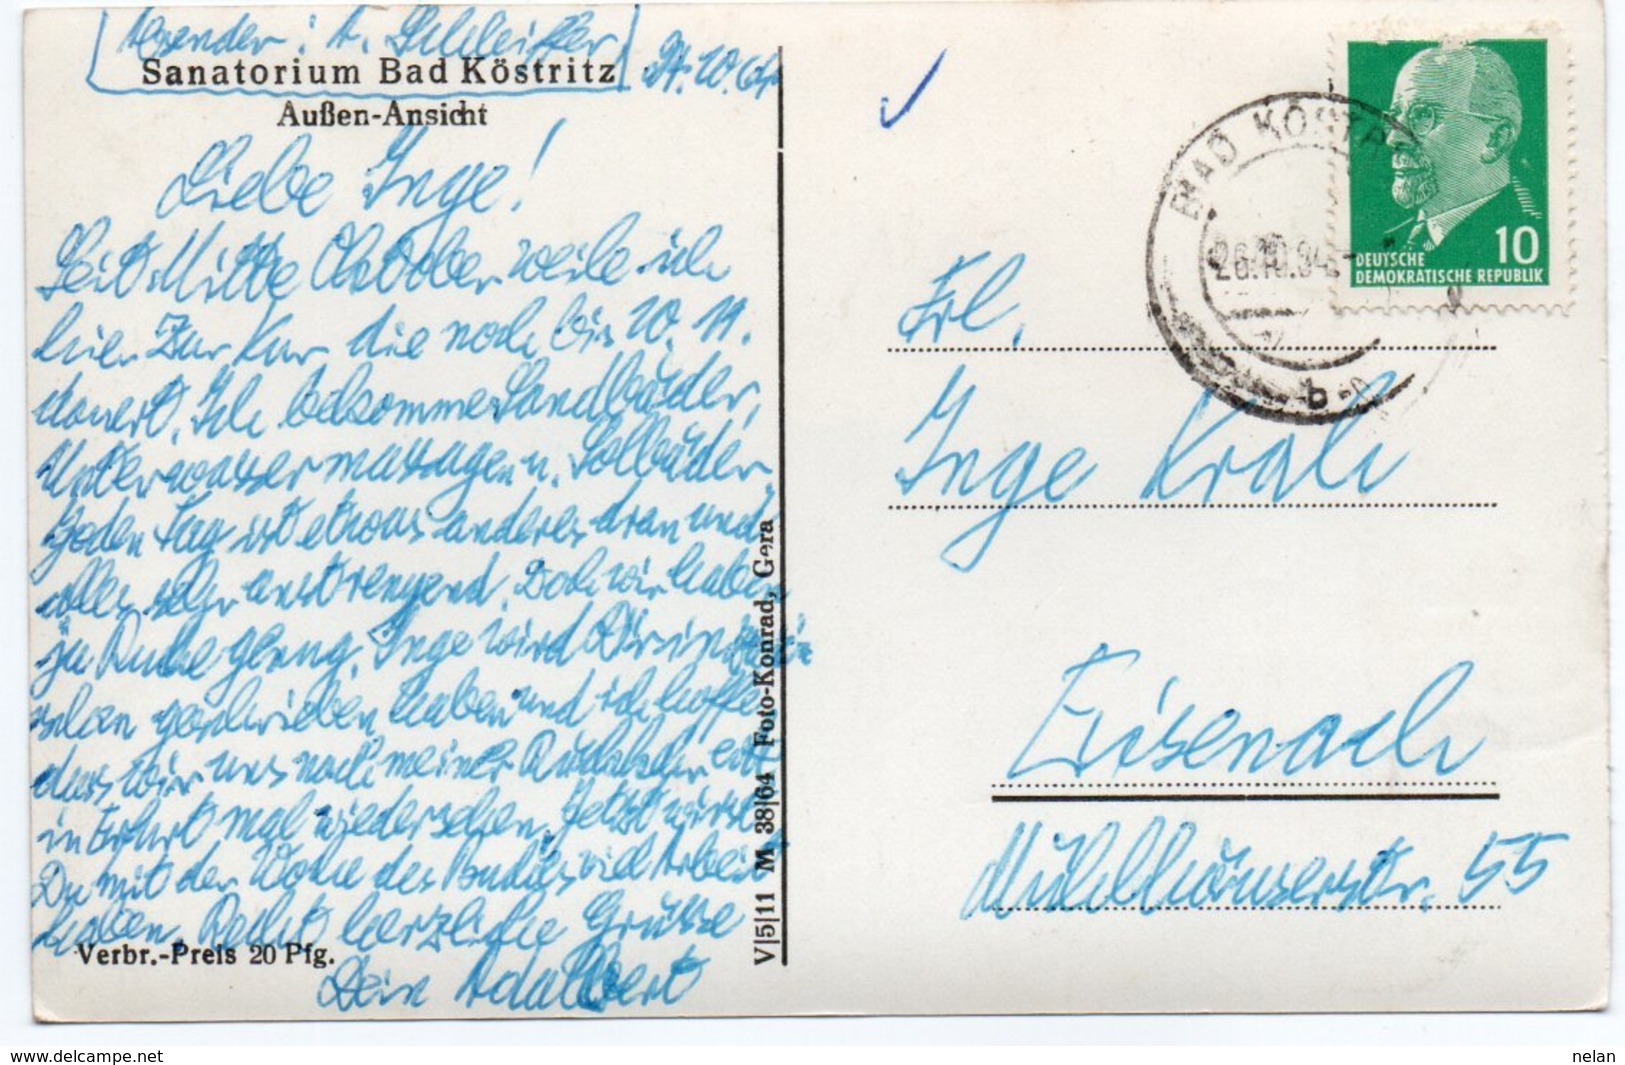 Absender: A. Schleiffer
Sanatorium Bad Köstritz
24.10.64
Außen-Ansicht
Liebe Inge!
Seit Mitte Oktober weile ich
hier zur Kur die noch bis 20. 11.
dauert. Ich bekomme Sandbäder,
Unterwassermassagen u. Solbäder.
Jeden Tag ist etwas anderes dran und
alles sehr anstrengend. Doch wir haben
ja Ruhe genug. Inge wird Dir
schon geschrieben haben und ich hoffe,
dass wir uns nach meiner Rückkehr
in Erfurt mal wiedersehen. Jetzt wirst
Du mit der Woche des Buches viel Arbeit
haben. Recht herzliche Grüsse
Dein Adalbert
Verbr.-Preis 20 Pfg.
V|5|11 M 38|64 Foto-Konrad, Gera
BAD KÖSTR
26.10.64
b
10
DEUTSCHE
DEMOKRATISCHE REPUBLIK
Frl.
Inge Krah
Eisenach
Mühlhäuserstr. 55
delcampe.net
nelan